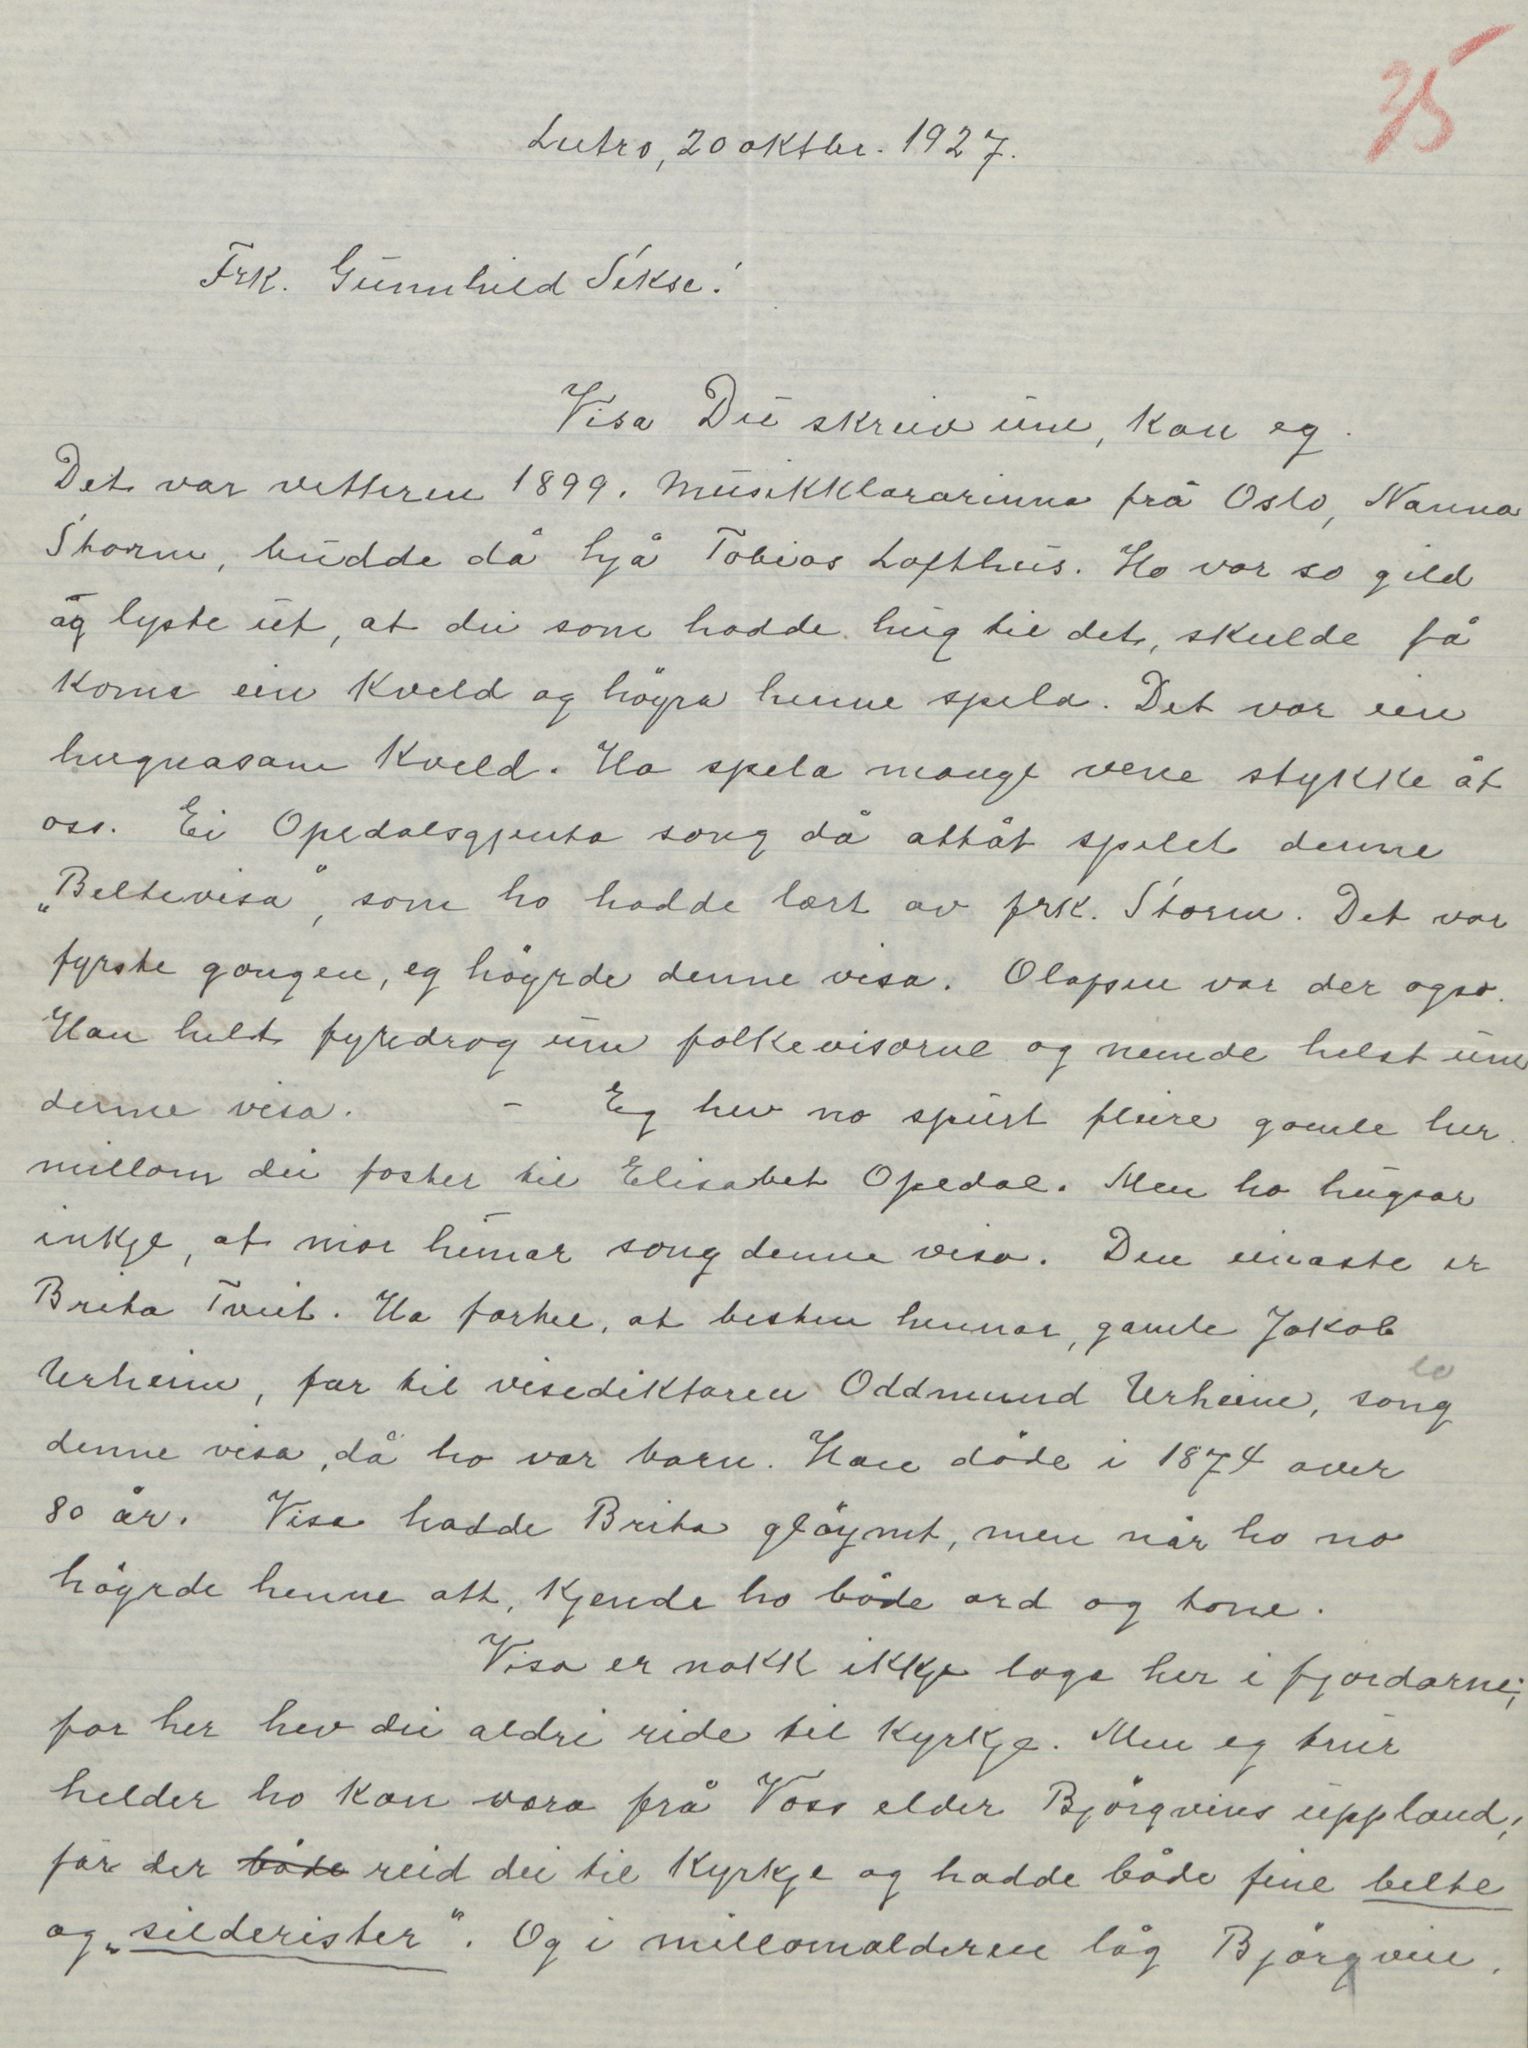 35
Lutro, 20 oktbr. 1927.
Frk. Gunnhild Sekse!
Visa Du skreiv um, kan eg.
Det var vetteren 1899. Musikklærarinna frå Oslo, Nanna
Storm, budde då hjå Tobias Lofthus. Ho var so gild
og lyste ut, at dei som hadde hug til det, skulde få
koma ein kveld og höyra henne spela. Det var ein
hugnasam kveld. Ho spela mange vene stykke åt
oss. Ei Opedalsgjenta song då attåt spelet denne
„Beltevisa", som ho hadde lært av frk. Storm. Det var
fyrste gongen, eg höyrde denne visa. Olafsen var der ogso.
Han heldt fyredrag um folkevisorne og nemde helst um
denne visa. - Eg hev no spurt fleire gamle her
millom dei foster til Elisabet Opedal. Men ho hugsar
inkje, at mor hennar song denne visa. Den einaste er
Brita Tveit. Ho fortel, at besten hennar, gamle Jakob
Urheim, far til visediktaren Oddmund Urheim, song
denne visa, då ho var barn. Han döde i 1874 over
80 år. Visa hadde Brita glöymt, men når ho no
höyrde henne att, kjende ho både ord og tone.
Visa er nokk ikkje laga her i fjordarne;
for her hev dei aldri ride til kyrkje. Men eg trur
helder ho kan vera frå Voss elder Björgvins uppland;
for der både reid dei til kyrkje og hadde både fine belte
og „silderister". Og i millomalderen låg Björgvin